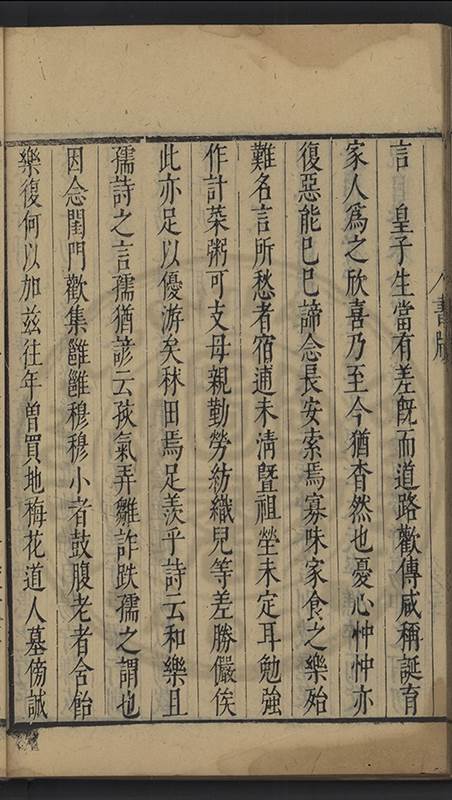 言　皇子生當有差既而道路歡傳咸稱誕育
家人爲之欣喜乃至今猶杳然也憂心忡忡亦
復惡能已已諦念長安索焉寡味家食之樂殆
難名言所愁者宿逋未清曁祖塋未定耳勉強
作計菜粥可支母親勤勞紡織兒等差勝儼俟
此亦足以優游矣秫田焉足羨乎詩云和樂且
孺詩之言孺猶諺云孩氣弄雛詐跌孺之謂也
因念閨門歡集雝雝穆穆小者鼓腹老者含飴
樂復何以加兹往年曾買地梅花道人墓傍誠